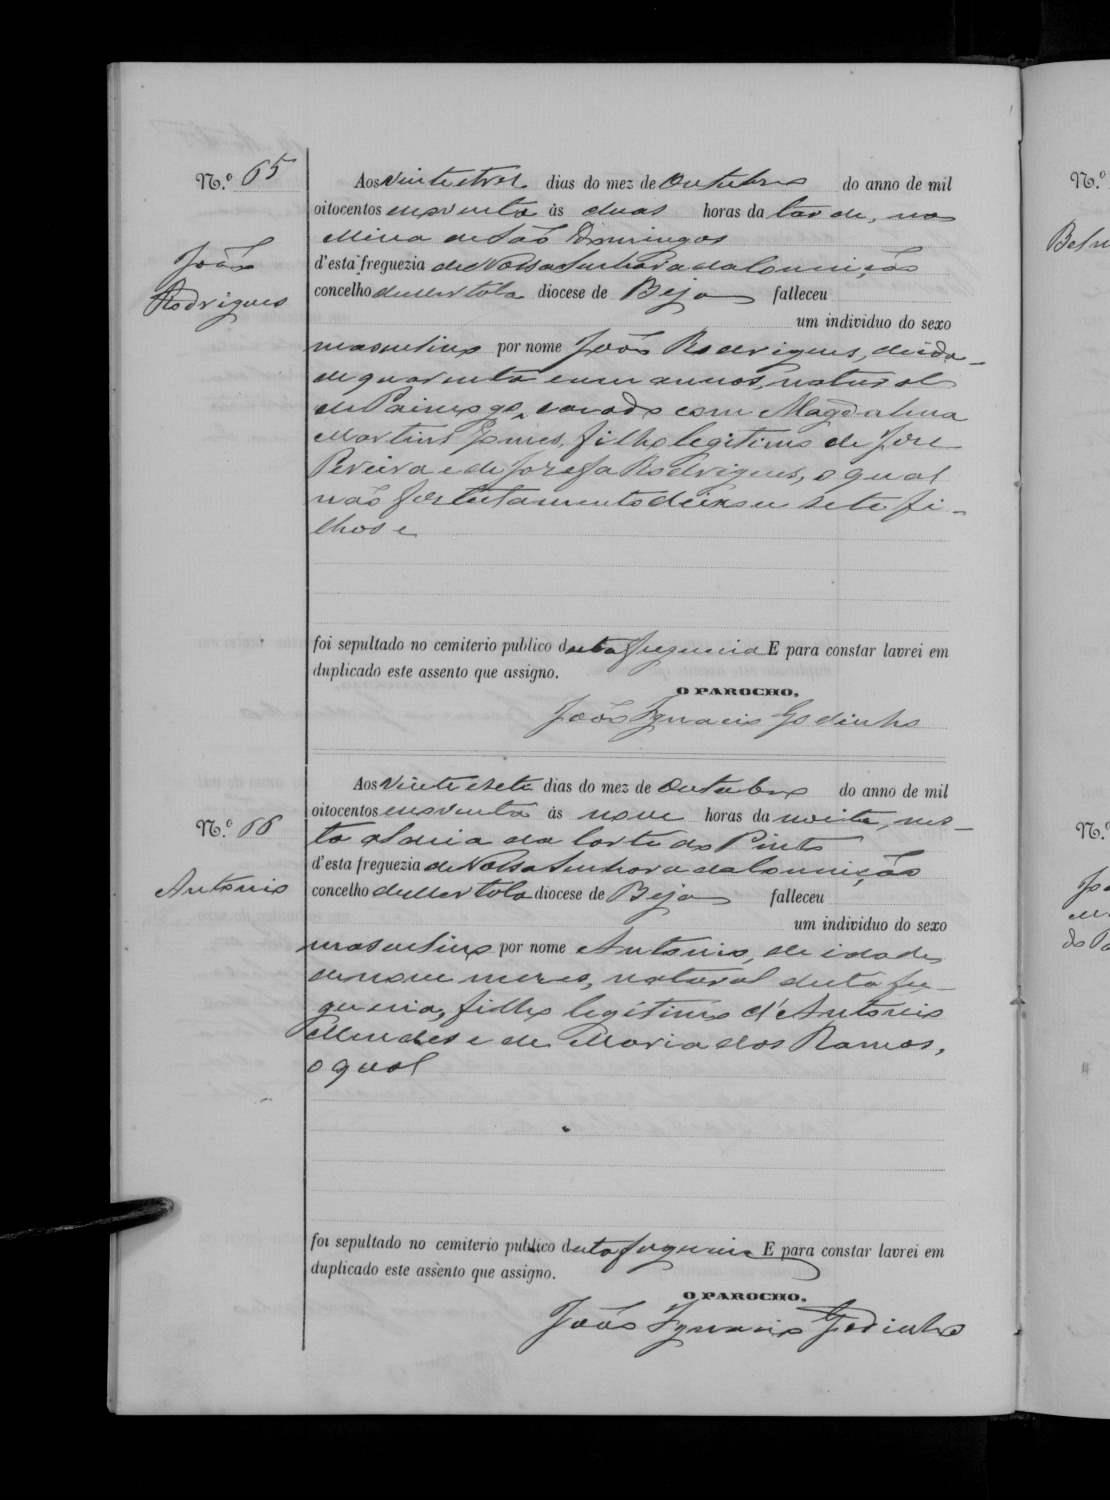 N.º 65
Aos vinte e tres dias do mez de Outubro do anno de mil
oitocentos e noventa ás duas horas da tarde, na
Mina de São Domingos
d'esta freguezia de Nossa Senhora da Conceição
João
Rodrigues
concelho de Mertola diocese de Beja falleceu
um individuo do sexo
masculino por nome João Rodrigues, de ida-
de quarenta e um annos, natural
de Paimogo, casado com Magdalena
Martins Gomes, filho legitimo de José
Pereira e de Josefa Rodrigues, o qual
não fez testamento deixou sete fi-
lhos e
foi sepultado no cemiterio publico desta freguezia E para constar lavrei em
duplicado este assento que assigno.
O PAROCHO.
João Ignacio Godinho
Aos vinte e sete dias do mez de Outubro do anno de mil
N.º 66
oitocentos e noventa ás nove horas da noite, nes-
ta aldeia da Corte do Pinto
d'esta freguezia de Nossa Senhora da Conceição
Antonio
concelho de Mertola diocese de Beja falleceu
um individuo do sexo
masculino por nome Antonio, de idade
de nove mezes, natural desta fre-
guezia, filho legitimo d'Antonio
Mendes e de Maria dos Ramos,
o qual
foi sepultado no cemiterio publico desta freguezia E para constar lavrei em
duplicado este assento que assigno.
O PAROCHO.
João Ignacio Godinho
N.º
N.º